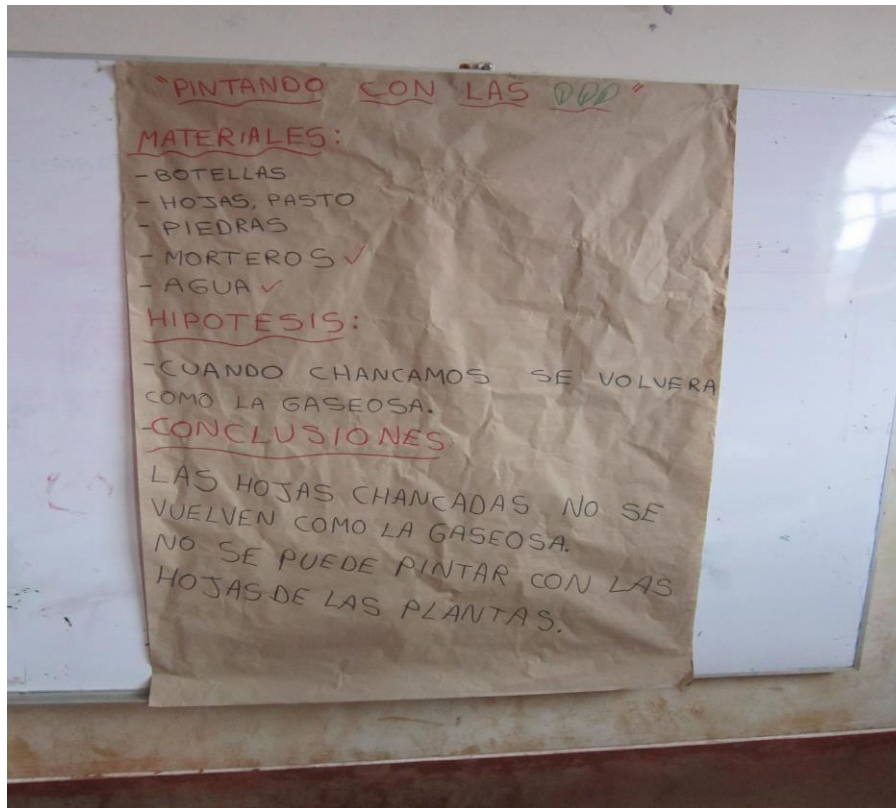 "PINTANDO CON LAS "
MATERIALES:
- BOTELLAS
- HOJAS, PASTO
- PIEDRAS
- MORTEROS ✓
- AGUA ✓
HIPOTESIS:
-CUANDO CHANCAMOS SE VOLVERA
COMO LA GASEOSA.
-CONCLUSIONES
LAS HOJAS CHANCADAS NO SE
VUELVEN COMO LA GASEOSA.
NO SE PUEDE PINTAR CON LAS
HOJAS DE LAS PLANTAS.